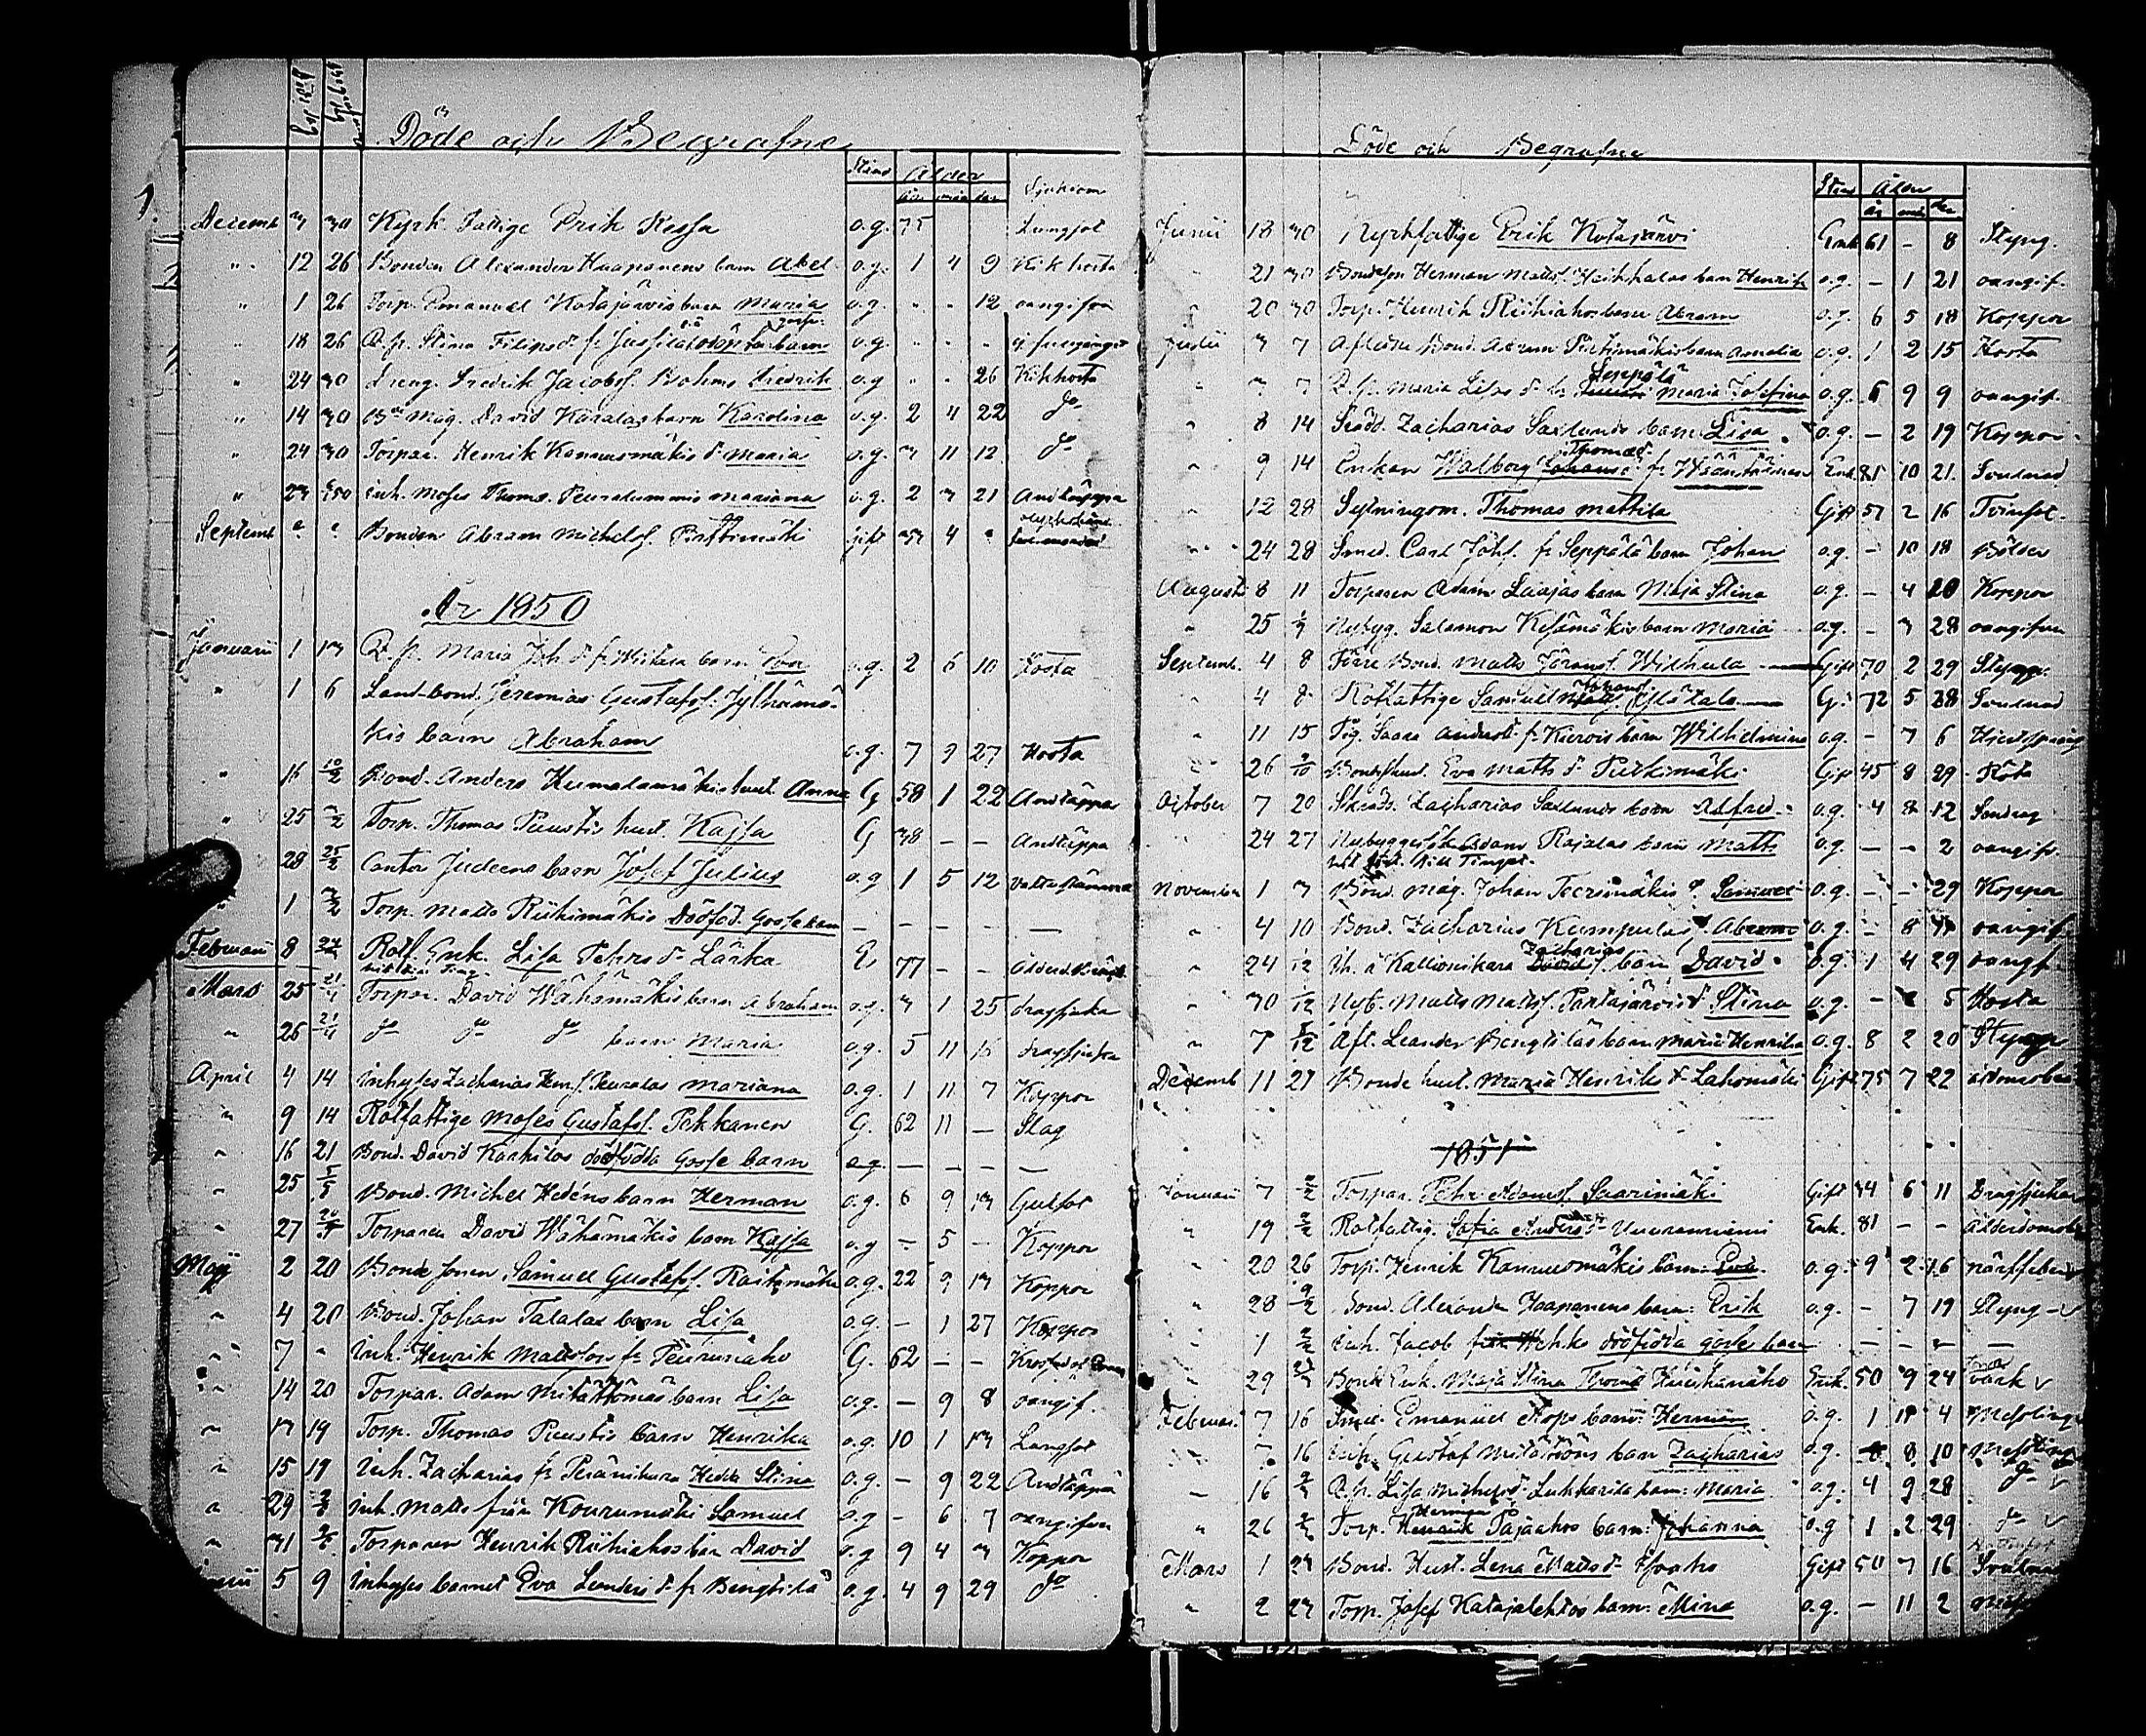 Döde och Begrafne
Stånd Ålder Sjukdom
Decemb 3 30 Kyrk. Fattige Erik Kessa o.g. 75 Lungsot
" 12 26 Bonden Alexander Haapanens barn Abel o.g. 1 4 9 Kikhosta
" 1 26 Torp. Emanuel Katajärvis barn Maria o.g. " " 12 oangifven
" 18 26 Q.p. Stina Filipsd. fr. barn o.g. " " "
" 24 30 Dreng. Fredrik Jacobss. Bohms Fredrik o.g. " " 26 Kikhosta
" 14 30 Bm. måg. David Karalas barn Karolina o.g. 2 4 22 Do
" 24 30 Torpar. Henrik Kannusmäkis d. Maria o.g. 3 11 12 Do
" 23 Inh. Moses Thoms. Peuralummis Mariana o.g. 2 3 21 Andtäppa
Septemb Bonden Abram Michelss. Pirttimäki gift 33 4
År 1850
Januarii 1 13 Q.p. Maria Joh.d. fr. Witala barn Eva o.g. 2 6 10 Hosta
" 1 6 Land-bond. Jeremias Gustafss. Jylhämä-
kis barn Abraham o.g. 7 9 27 Hosta
" 16 10/2 Bond. Anders Humalamäkis hust. Anna G 58 1 22 Andtäppa
" 25 3/2 Torp. Thomas Puustis hust. Kajsa G 38 – – Andtäppa
" 28 25/2 Cantor Judeens barn Josef Julius o.g 1 5 12
" 1 3/2 Torp. Matts Riihimäkis Dödföd. Gossebarn – – – – –
Februarii 8 24/2 Rotf. Enk. Lisa Pehrs d. Lärka E 77 – –
Mars 25 21/4 Torpar. David Wähämäkis barn Abraham o.g. 3 1 25 dragsjuka
" 26 21/4 Do Do Do barn Maria o.g. 5 11 16 dragsjuka
April 4 14 Inhyses Zacharias Hen.s. Peuralas Mariana o.g. 1 11 7 Koppor
" 9 14 Rotfattige Moses Gustafss. Pekkanen G. 62 11 – Slag
" 16 21 Bond. David Karhilas dödfödda Gosse barn o.g. – – – –
" 25 5/5 Bond. Michel Hedéns barn Herman o.g. 6 9 13 Gulsot
" 27 Torparen David Wähämäkis barn Kajsa o.g – 5 – Koppor
Maji 2 20 Bonde sonen Samuel Gustafss. Raitamäki o.g. 22 9 13 Koppor
" 4 20 Bond. Johan Talalas barn Lisa o.g. – 1 27 Koppor
" 7 " Inh. Henrik Mattsson fr. Peuruniaho G. 62 – –
" 14 20 Torpar. Adam barn Lisa o.g. – 9 8 oangif.
" 13 19 Torp. Thomas Puustis barn Henrika o.g. 10 1 13 Lungsot
" 15 19 Inh. Zacharias fr. Peränikara Hedda Stina o.g. – 9 22 Andtäppa
" 29 Inh. Matts från Kourumäki Samuel o.g – 6 7 oangifven
" 31 Torparen Henrik Riihiahos barn David o.g 9 4 3 Koppor
5 9 Inhyses barnet Eva Leanders d. fr. Bengtilä o.g. 4 9 29 Do
Döde och Begrafne
Stånd Ålder
Junii 18 30 Kyrkfattige Erik Katajärvi Enk 61 – 8 Styng.
" 21 30 Bondeson Herman Matts. Heikkalas barn Henrik o.g. – 1 21 oangif.
" 20 30 Torp. Henrik Riihiahos barn Abram o.g. 6 5 18 Koppor
Julii 3 7 Aflidne Bond. Abram Pirttimäkis barn Amalia o.g. 1 2 15 Hosta
" 3 7 Q.p. Maria Lisas d. fr. Seppälä Maria Josefina o.g. 6 9 9 oangif.
" 8 14 Skrädd. Zacharias Saxlunds barn Lisa o.g. – 2 19 Koppor
" 9 14 Enkan Walborg Thomasd. fr. Enk. 81 10 21 Svulnad
" 12 28 Sytningsm. Thomas Mattila Gift 57 2 16 Tvinsot.
" 24 28 Smed. Carl Johs. fr. Seppälä barn Johan o.g. – 10 18 Bölder
August 8 11 Torparen Adam Laajas barn Maja Stina o.g. – 4 20 Koppor
" 25 1/9 Nybyg. Salamon Kesämäkis barn Maria o.g. – 3 28 oangifven
Septemb. 4 8 Förre Bond. Matts Görans. Wilhula Gift 70 2 29 Styng
" 4 8 Rotfattige Samuel Johans. Ylätalo G. 72 5 28 Svulnad
" 11 15 Pig. Saara Andersd. fr. Kiervis barn Wilhelmina o.g. – 7 6
" 26 9/10 Bonds hust. Eva Matts d. Purkimäki Gift 45 8 29 Röta
October 7 20 Skräd. Zacharias Saxlunds barn Alfred o.g. 4 8 12
" 24 27 Nybyggesök. Adam Rajalas barn Matts o.g. – – 2 oangif.
November 1 3 Bond måg. Johan Teerimäkis s. Samuel o.g. – – 29 Koppor
" 4 10 Bond. Zacharias Kumpulas s. Abram o.g. – 8 oangif.
" 24 1/12 Ih. å Kallionikara Zacharias s. barn David o.g. 1 4 29 oangf.
" 30 1/12 Nyb. Matts Matts. Pantajärvis d. Stina o.g. – 5 Hosta
" 7 Afl. Leander Bengtiläs barn Maria Henrika o.g. 8 2 20 Styng
Decemb 11 27 Bonde hust. Maria Henriks d. Lahomäki Gift 75 7 22
1851
Januarii 7 2/2 Torpar. Pehr Adams. Saarimäki Gift 44 6 11 Dragsjukan
" 19 2/2 Rotfattig. Sofia Anders d. Vuorenniemi Enk. 81 – –
" 20 26 Torp. Henrik Kannusmäkis barn: Eva o.g. 9 2 16 närffeber
" 28 9/2 Bond. Alexander Haapanens barn: Erik o.g. – 7 19 Styng
" 1 2/2 Inh. Jacob dödfödda gosse barn – – – –
" 29 Bonde Enk. Maja Stina Thomsd Enk. 50 9 24 värk
Februar. 7 16 Smed. Emanuel Kops barn: Herman o.g. 1 11 4 Messling
" 7 16 Inh. Gustaf barn Zacharias o.g. 8 10 Messling
" 16 Q.p. Lisa Michelsd. Lukkarila barn: Maria o.g. 4 9 28 Do
" 26 Torp. Herman Pajaahos barn: Johanna o.g 1 2 29 Do
Mars 1 23 Bond. Hust. Lena Matts d. Gift 50 7 16
" 2 23 Torp. Josef Katajalehtos barn: Mina o.g. – 11 2